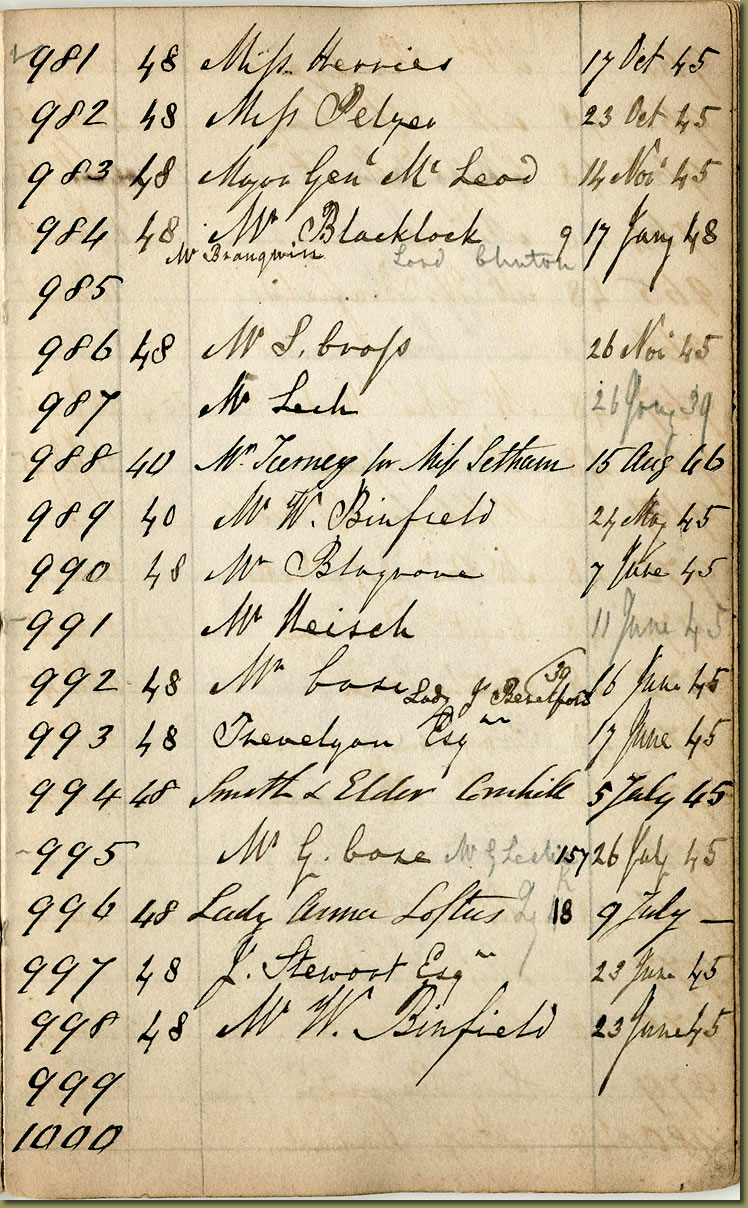 981 48 Miss Herries 17 Oct 45
982 48 Miss Pelzer 23 Oct 45
983 48 Major Genl Mc Leod 14 Nov 45
984 48 Mr Blacklock 9 17 Jany 48
Mr Brangwin Lord
985
986 48 Mr S. Cross 26 Nov 45
987 Mr Lech 26 Jany 39
988 40 Mr Tierney for Miss 15 Aug 46
989 40 Mr W. Binfield 24 May 45
990 48 Mr Blagrove 7 June 45
991 Mr Heisch 11 June 45
992 48 Mr Case 16 June 45
Lady J Beresford 39
993 48 Trevelyan Esqre 17 June 45
994 48 Smith & Elder Cornhill 5 July 45
995 Mr G. Case Mr G 157 26 July 45
996 48 Lady Anna Loftus 18 9 July —
997 48 J. Stewart Esqre 23 June 45
998 48 Mr W. Binfield 23 June 45
999
1000